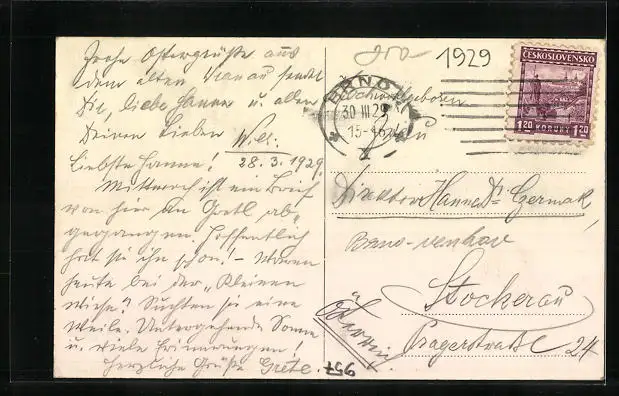 Frohe Ostergrüße aus
dem alten Vranau sendet
Dir, liebe Hanne u. allen
Deinen Lieben Willi
28.3.1929
Liebste Hanne!
Mittwoch ist ein Brief
von hier an Gretl ab-
gegangen. Hoffentlich
hat sie ihn schon! – Waren
heute bei der „Kleinen
Wiese". Suchten sie eine
Weile. Untergehende Sonne
u. viele Erinnerungen!
Herzliche Grüße Grete.
1929
ČESKOSLOVENSKO
1.20 KORUNY 1.20
BRNO
30 III 29
15-16
1
Hochwohlgeboren
Frau
Direktor Hanne Dr. Czermak
Brno-venkov
Stockerau
Österreich
Pragerstraße 24
957